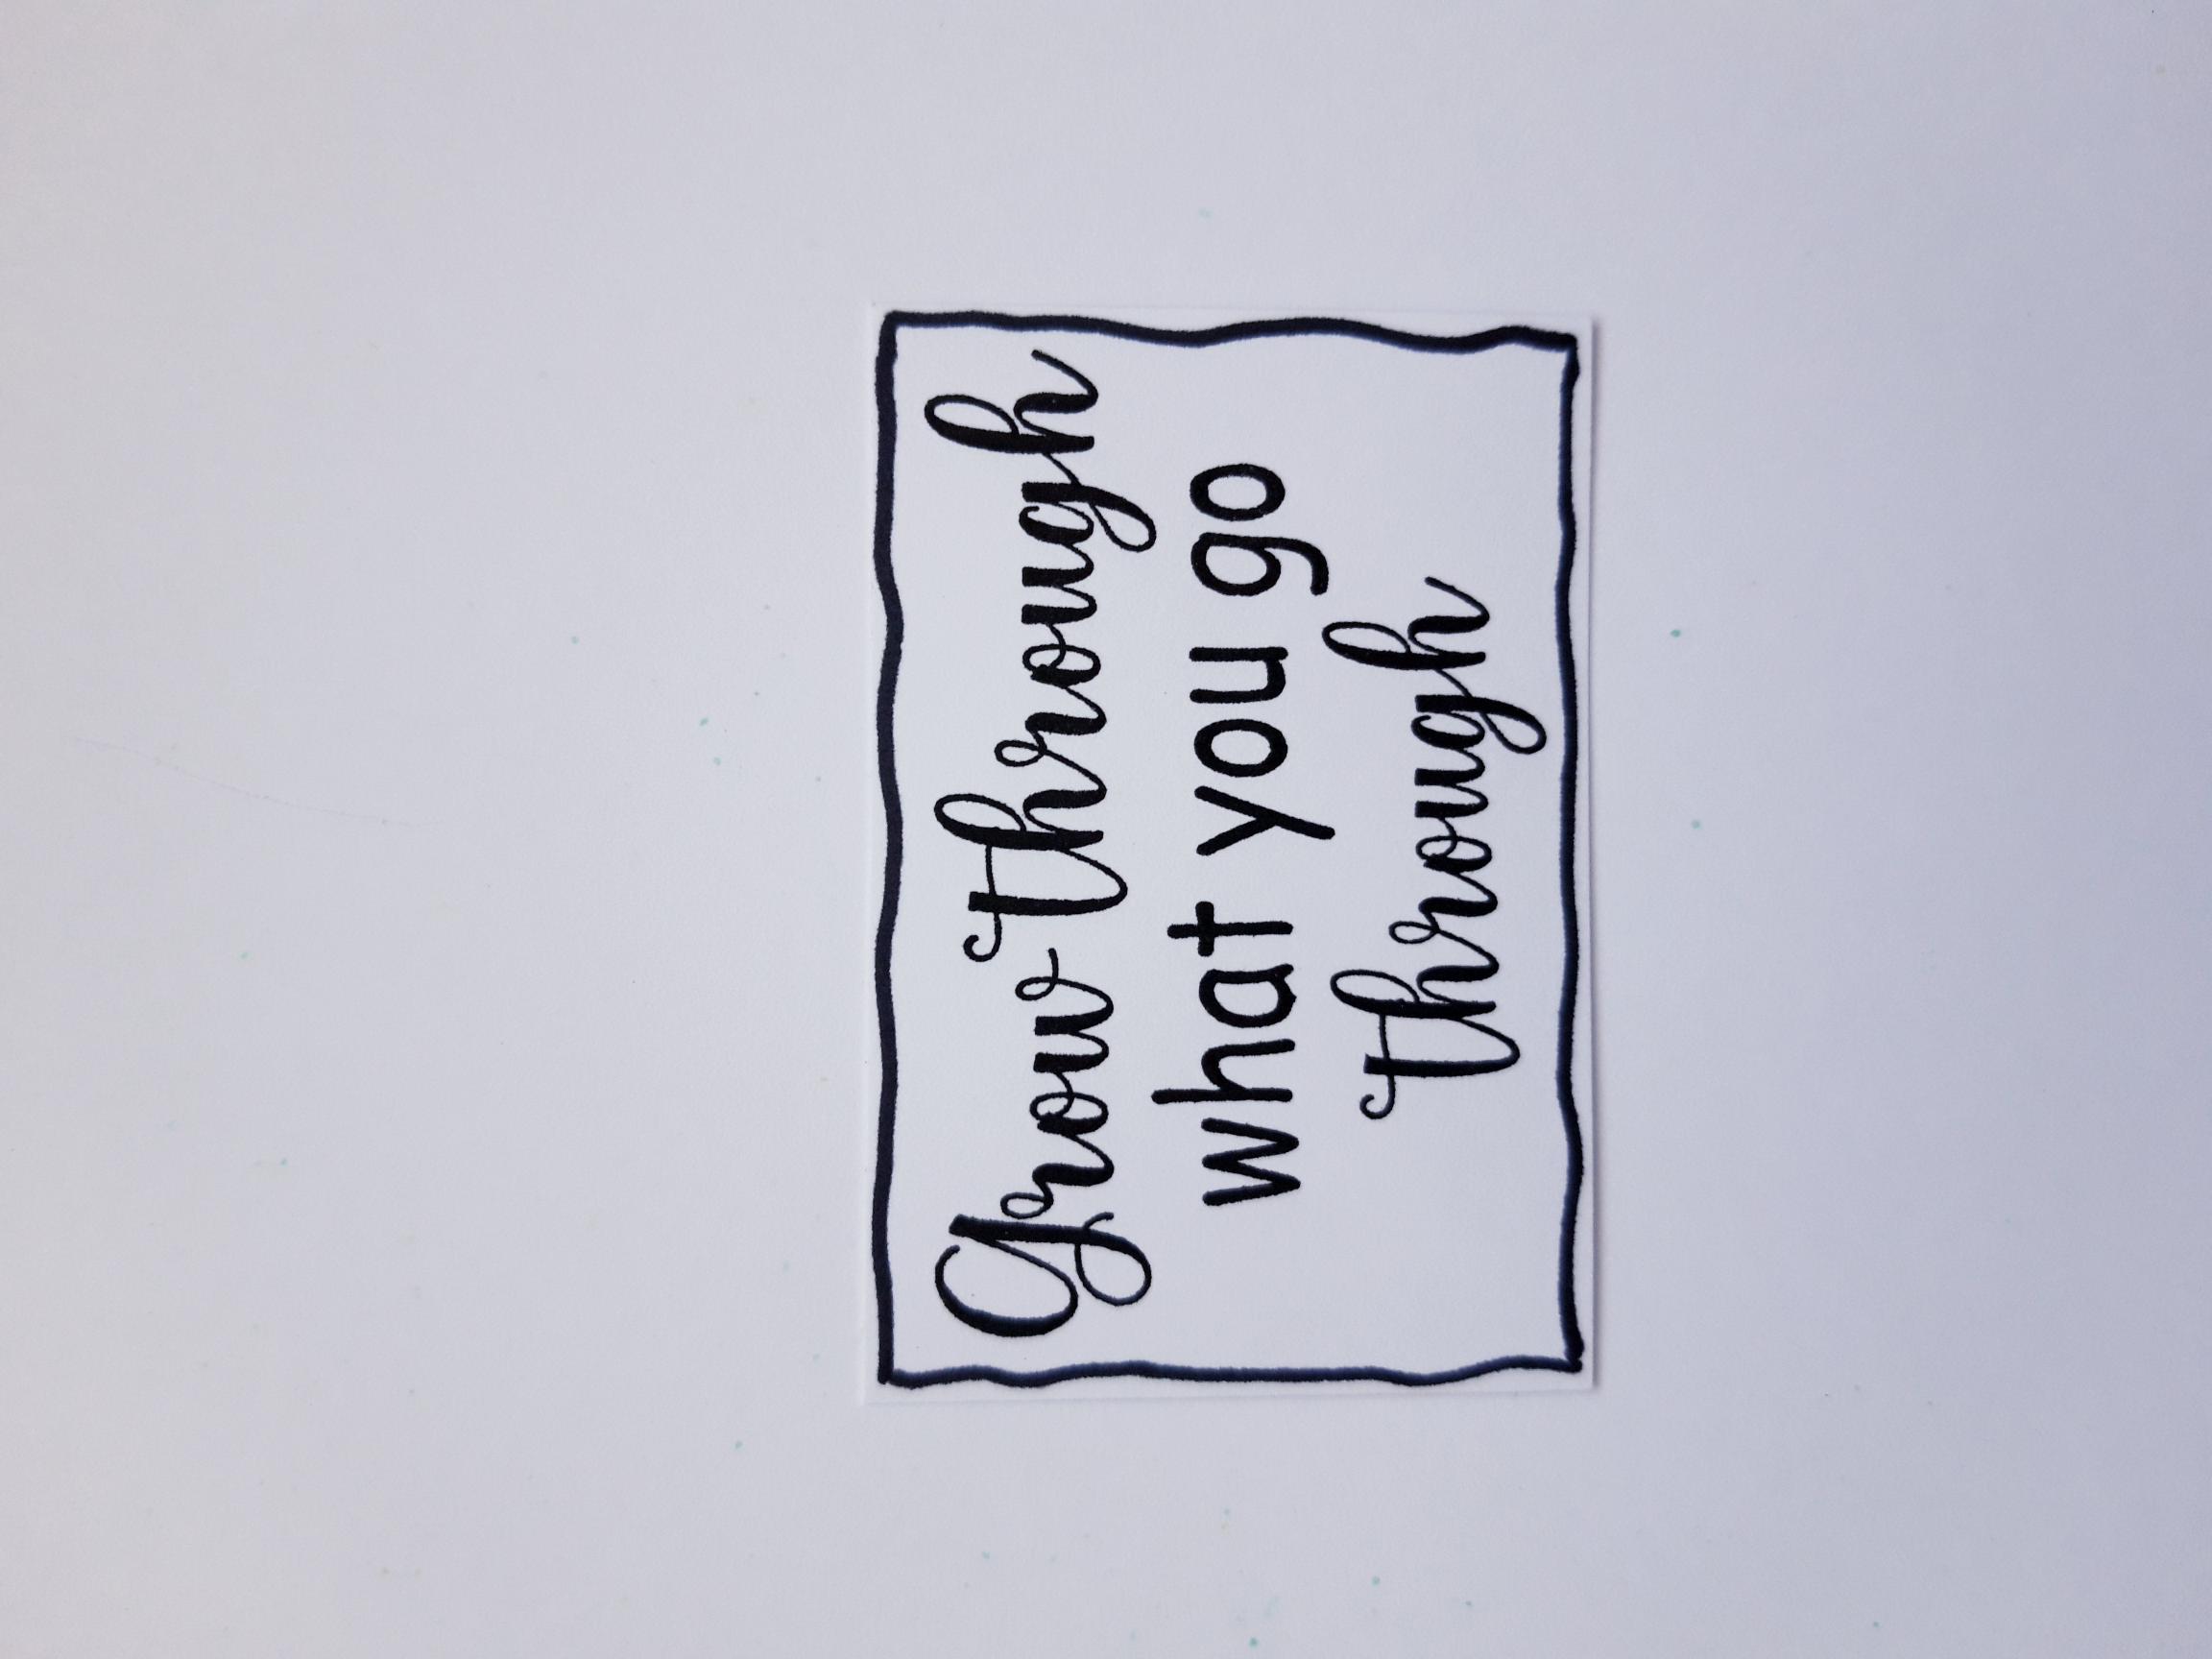 Grow through
what you go
through